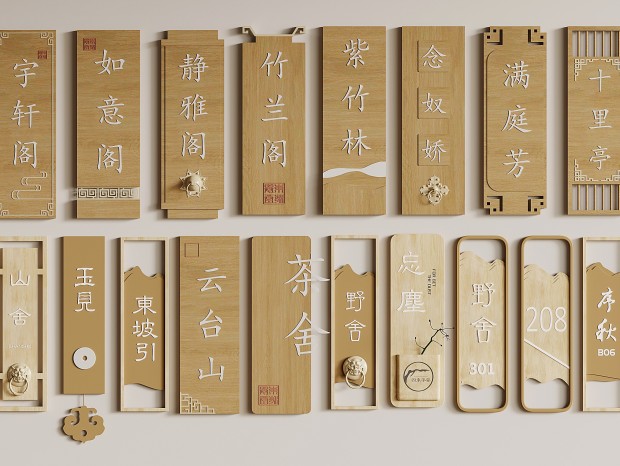 宇轩阁
如意阁
静雅阁
竹兰阁
紫竹林
念奴娇
满庭芳
十里亭
山舍
玉見
東坡引
云台山
茶舍
野舍
忘塵
野舍
301
208
序秋
B06